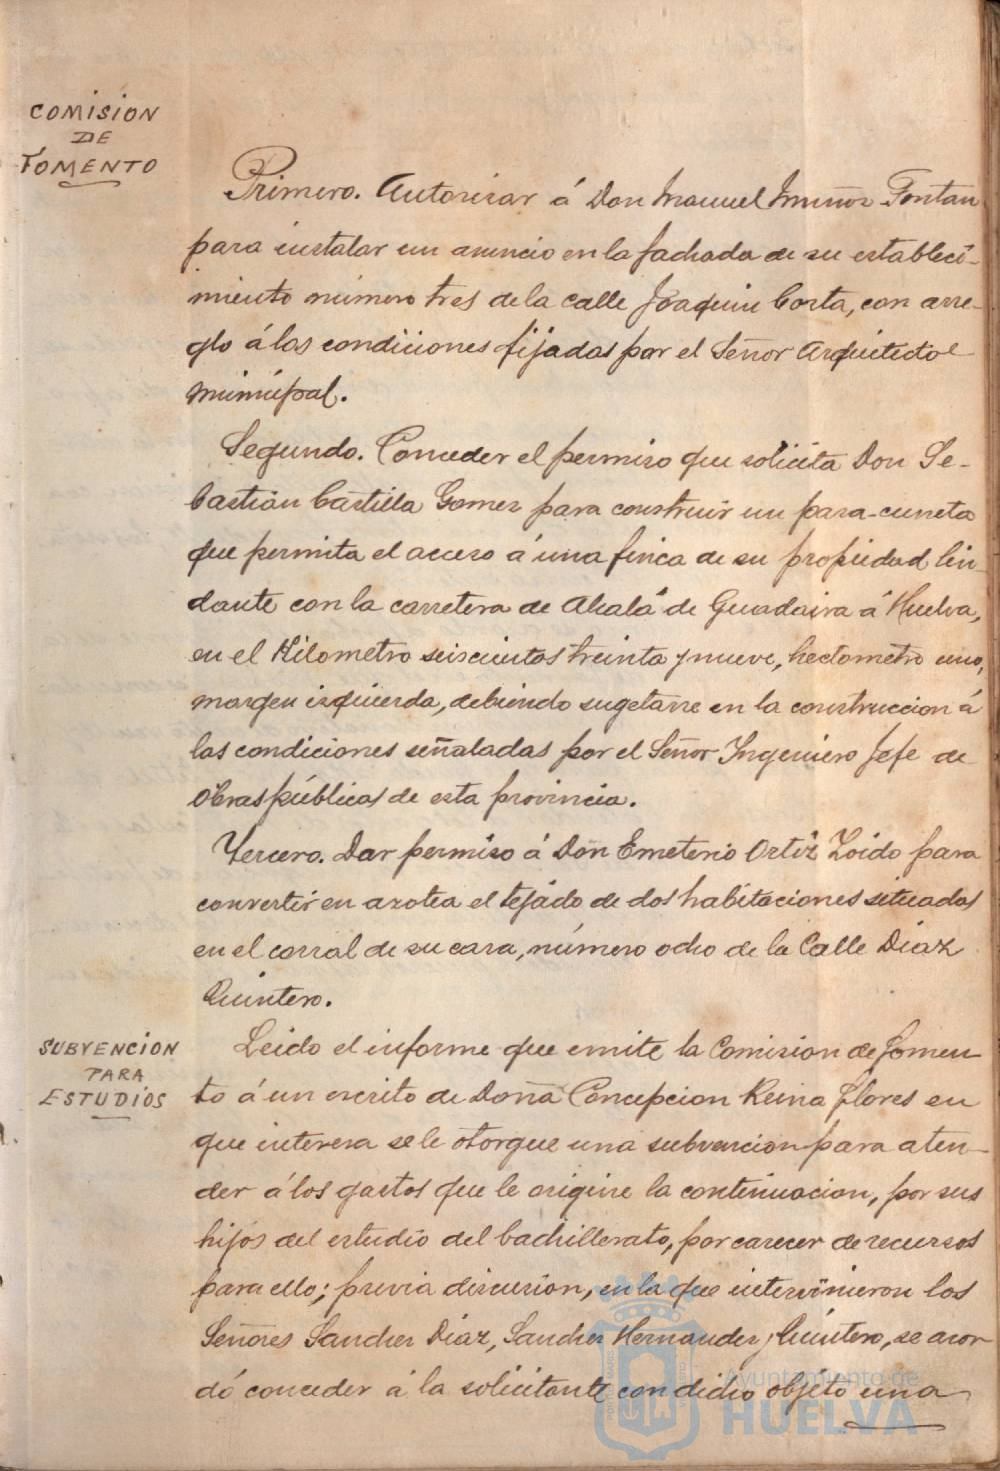 COMISION
DE
FOMENTO
Primero. Autorizar á Don Manuel Muñoz Fontan
para instalar un anuncio en la fachada de su estableci-
miento número tres de la calle Joaquin Costa, con arre-
glo á las condiciones fijadas por el Señor Arquitecto
municipal.
Segundo. Conceder el permiso que solicita Don Se-
bastián Castilla Gomez para construir un para-cuneta
que permita el acceso á una finca de su propiedad lin-
dante con la carretera de Alcalá de Guadaira á Huelva,
en el Kilometro seiscientos treinta y nueve, hectometro uno,
margen izquierda, debiendo sugetarse en la construccion á
las condiciones señaladas por el Señor Ingeniero Jefe de
Obras públicas de esta provincia.
Tercero. Dar permiso á Don Emeterio Ortiz Zoido para
convertir en azotea el tejado de dos habitaciones situadas
en el corral de su casa, número ocho de la Calle Diaz
Quintero.
SUBVENCION
PARA
ESTUDIOS
Leido el informe que emite la Comision de Fomen-
to á un escrito de Doña Concepcion Reina Flores en
que interesa se le otorgue una subvencion para aten-
der á los gastos que le origine la continuacion, por sus
hijos del estudio del bachillerato, por carecer de recursos
para ello; previa discusion, en la que intervinieron los
Señores Sanchez Diaz, Sanchez Hernandez y Quintero, se acor
dó conceder á la solicitante con dicho objeto una
Ayuntamiento de
HUELVA